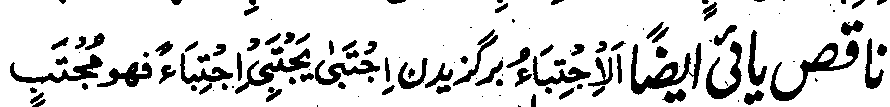 ناقص یائی ایضًا اَلْاِجْتِبَاءُ برگزیدن اِجْتَبٰی یَجْتَبِیْ اِجْتِبَاءً فهو مُجْتَبٍ